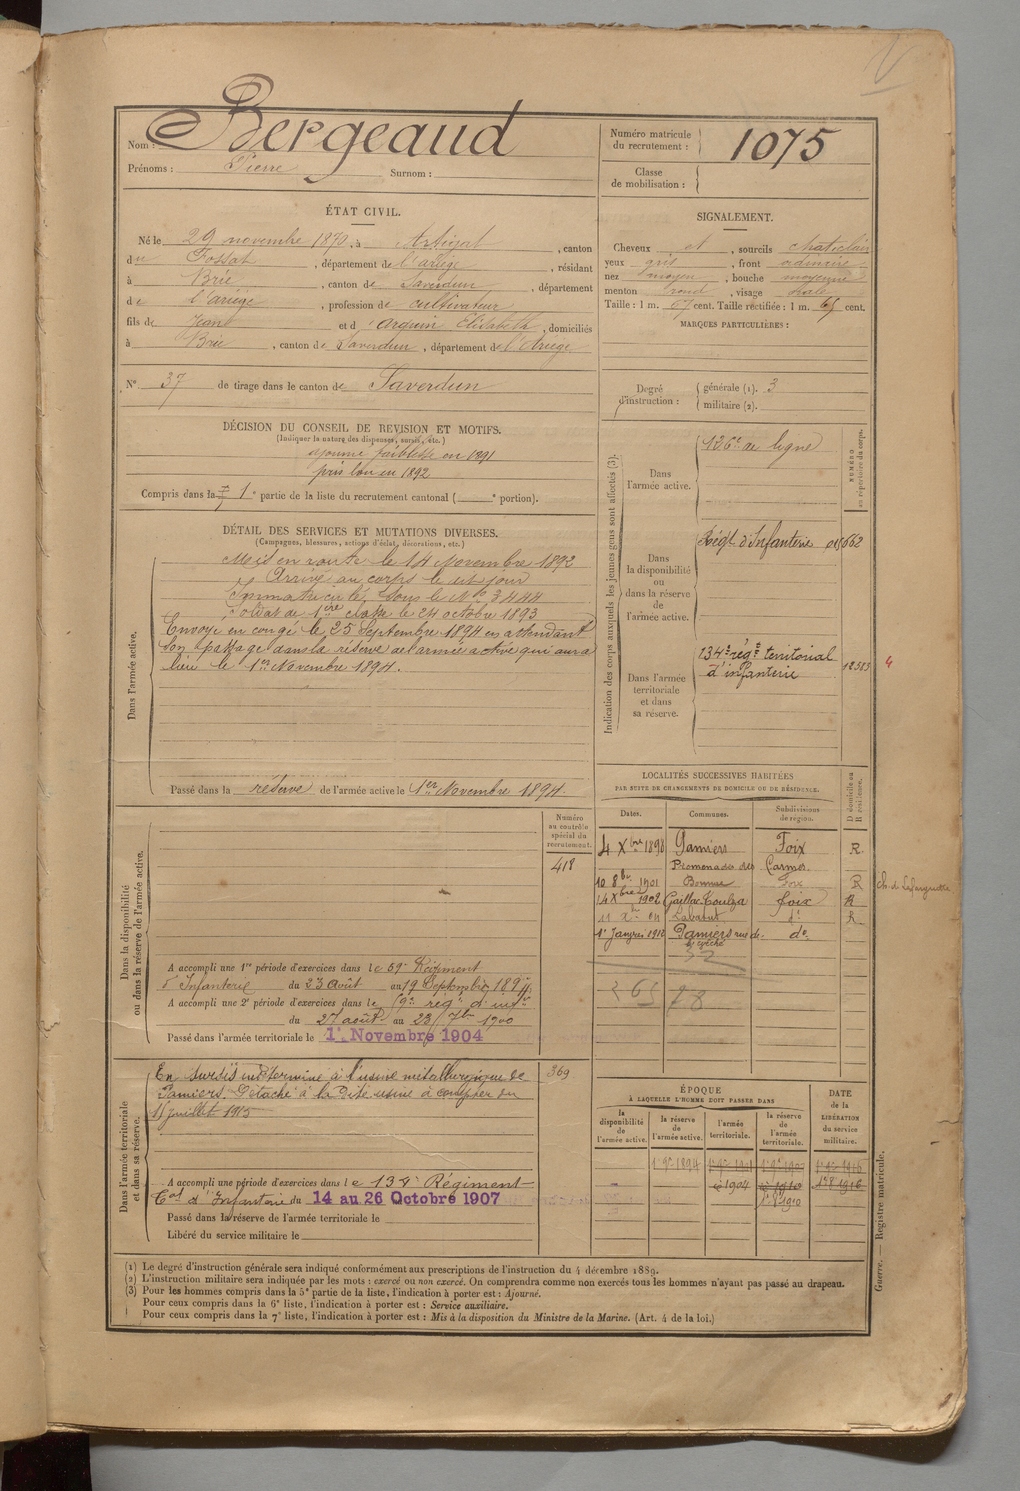 Nom : Bergeaud
Prénoms : Pierre Surnom :
Numéro matricule du recrutement : 1075
Classe de mobilisation :
ÉTAT CIVIL.
Né le 29 novembre 1870, à Artigat, canton
du Fossat, département de l'ariége, résidant
à Brie, canton de Saverdun, département
de l'ariége, profession de cultivateur
fils de Jean et d'arquin Elisabeth, domiciliés
à Brie, canton de Saverdun, département de l'Ariège.
N° 37 de tirage dans le canton de Saverdun
SIGNALEMENT.
Cheveux et, sourcils chat clair
yeux gris, front ordinaire
nez moyen, bouche moyenne
menton rond, visage ovale
Taille : 1 m. 67 cent. Taille rectifiée : 1 m. 65 cent.
MARQUES PARTICULIÈRES :
Degré d'instruction :
générale (1). 3
militaire (2).
DÉCISION DU CONSEIL DE REVISION ET MOTIFS.
(Indiquer la nature des dispenses, sursis, etc.)
ajourné faiblesse en 1891
pris bon en 1892
Compris dans la 1e partie de la liste du recrutement cantonal ( e portion).
DÉTAIL DES SERVICES ET MUTATIONS DIVERSES.
(Campagnes, blessures, actions d'éclat, décorations, etc.)
Dans l'armée active.
Mis en route le 14 Novembre 1892
Arrivé au corps le dit jour
Immatriculé sous le No 3444
Soldat de 1ère classe le 24 octobre 1893
Envoyé en congé le 25 Septembre 1894 en attendant
son passage dans la réserve de l'armée active qui aura
lieu le 1er Novembre 1894.
Passé dans la réserve de l'armée active le 1er Novembre 1894.
Indication des corps auxquels les jeunes gens sont affectés (3).
NUMÉRO au répertoire du corps.
Dans l'armée active.
126e de ligne
Dans la disponibilité ou dans la réserve de l'armée active.
Régt d'Infanterie
Dans l'armée territoriale et dans sa réserve.
134e régt territorial
d'infanterie
12383
4
LOCALITÉS SUCCESSIVES HABITÉES
PAR SUITE DE CHANGEMENTS DE DOMICILE OU DE RÉSIDENCE.
Dates. Communes. Subdivisions de région. Domicile ou Résidence.
4 Xbre 1898 Pamiers Foix R.
Promenade des Carmes.
10 8bre 1901 Bonnac Foix R
14 Xbre 1902 Gaillac-Toulza foix R
Labatut do R
1er Janvier 1912 Pamiers rue de do
Dans la disponibilité ou dans la réserve de l'armée active.
Numéro au contrôle spécial du recrutement.
418
A accompli une 1re période d'exercices dans le 59e Régiment
d'Infanterie du 23 août au 19 Septembre 1897
A accompli une 2e période d'exercices dans le 59e régt d'inftie
du 27 août au 23 7bre 1900
Passé dans l'armée territoriale le 1er Novembre 1904
Dans l'armée territoriale et dans sa réserve.
En sursis indéterminé à l'usine métallurgique de
Pamiers. Détaché à la dite usine à compter du
11 juillet 1915
369
A accompli une période d'exercices dans le 134e Régiment
Tal d'Infanterie du 14 au 26 Octobre 1907
Passé dans la réserve de l'armée territoriale le
Libéré du service militaire le
ÉPOQUE
À LAQUELLE L'HOMME DOIT PASSER DANS
la disponibilité de l'armée active.
la réserve de l'armée active.
l'armée territoriale.
la réserve de l'armée territoriale.
DATE de la LIBÉRATION du service militaire.
1er 9bre 1894
1904
1910
1916
Guerre. — Registre matricule.
(1) Le degré d'instruction générale sera indiqué conformément aux prescriptions de l'instruction du 4 décembre 1889.
(2) L'instruction militaire sera indiquée par les mots : exercé ou non exercé. On comprendra comme non exercés tous les hommes n'ayant pas passé au drapeau.
(3) Pour les hommes compris dans la 5e partie de la liste, l'indication à porter est : Ajourné.
Pour ceux compris dans la 6e liste, l'indication à porter est : Service auxiliaire.
Pour ceux compris dans la 7e liste, l'indication à porter est : Mis à la disposition du Ministre de la Marine. (Art. 4 de la loi.)